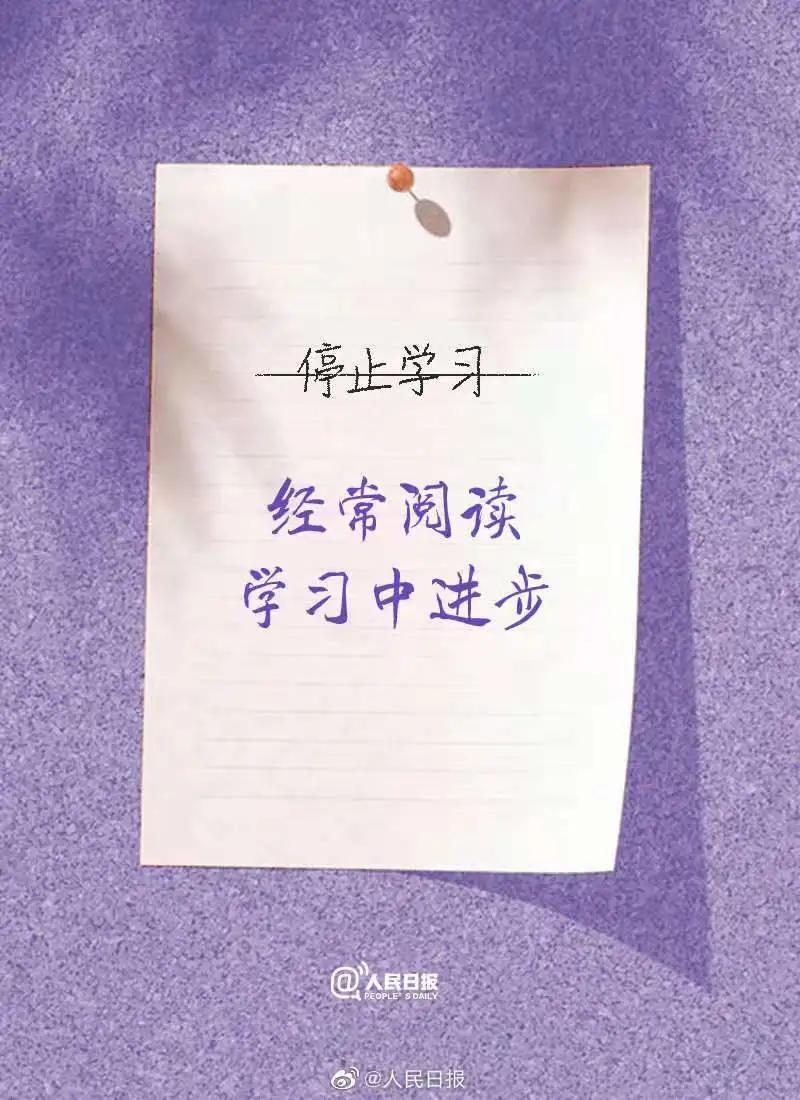 停止学习
经常阅读
学习中进步
@人民日报
PEOPLE'S DAILY
@人民日报